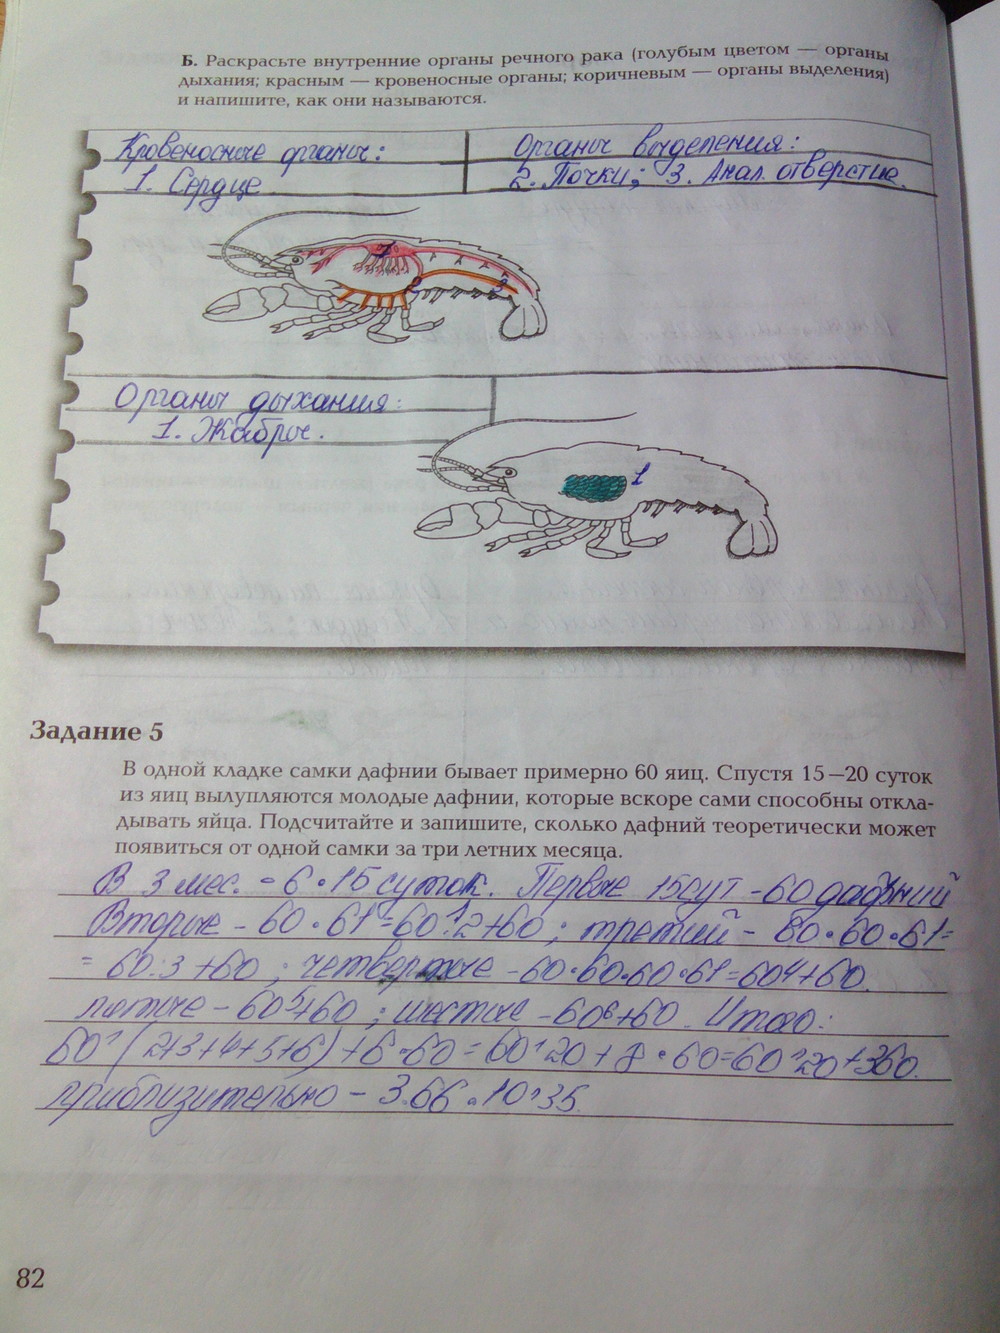 Б. Раскрасьте внутренние органы речного рака (голубым цветом — органы
дыхания; красным — кровеносные органы; коричневым — органы выделения)
и напишите, как они называются.
Кровеносные органы:
1. Сердце
Органы выделения:
2. Почки; 3. Анал. отверстие.
1
2
3
Органы дыхания:
1. Жабры.
1
Задание 5
В одной кладке самки дафнии бывает примерно 60 яиц. Спустя 15—20 суток
из яиц вылупляются молодые дафнии, которые вскоре сами способны откла-
дывать яйца. Подсчитайте и запишите, сколько дафний теоретически может
появиться от одной самки за три летних месяца.
В 3 мес. - 6 · 15 суток. Первые 15 сут - 60 дафний
Вторые - 60 · 61 = 60^2+60; третий - 60·60·61=
= 60:3 +60; четвертые - 60·60·60·61=60^4+60.
пятые - 60^5+60; шестые - 60^6+60. Итого:
60^(2+3+4+5+6) + 6·60 = 60^20 + 8 · 60=60^20+360.
приблизительно - 3.66 · 10^35
82